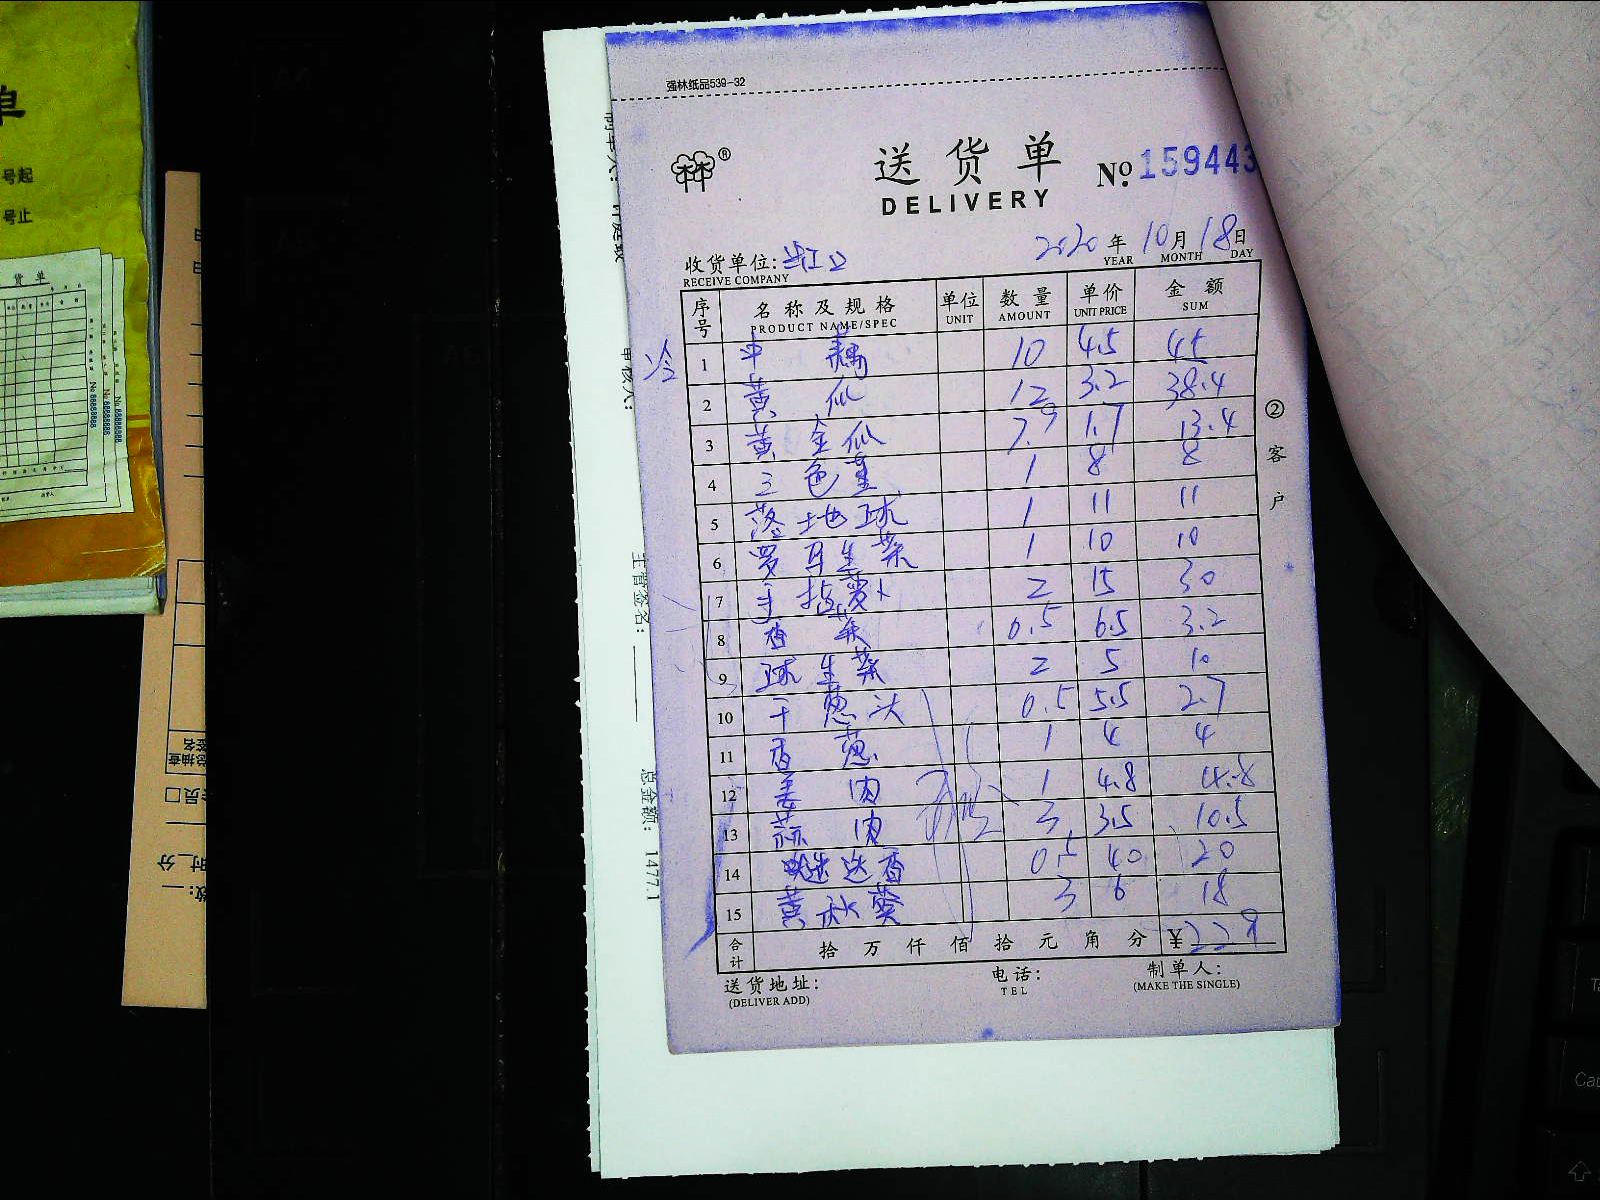 强林纸品539-32
送货单
DELIVERY
№ 159443
收货单位:
RECEIVE COMPANY
2020年 10月 18日
YEAR MONTH DAY
序号 名称及规格 单位 数量 单价 金额
PRODUCT NAME/SPEC UNIT AMOUNT UNIT PRICE SUM
冷
1 中藕 10 4.5 45
2 黄瓜 12 3.2 38.4
3 黄金瓜 7.9 1.7 13.4
4 三色堇 1 8 8
5 落地球 1 11 11
6 罗马生菜 1 10 10
7 手指萝卜 2 15 30
8 香菜 0.5 6.5 3.2
9 球生菜 2 5 10
10 干葱头 0.5 5.5 2.7
11 香葱 1 4 4
12 姜肉 1 4.8 4.8
13 蒜肉 3 3.5 10.5
14 迷迭香 0.5 40 20
15 黄秋葵 3 6 18
合计 拾万仟佰拾元角分 ¥229
送货地址:
(DELIVER ADD)
电话:
TEL
制单人:
(MAKE THE SINGLE)
②客户
审核人:
主管签名:
总金额: 1477.1
单
号起
号止
货单
№ 8888888
№ 8888888
№ 8888888